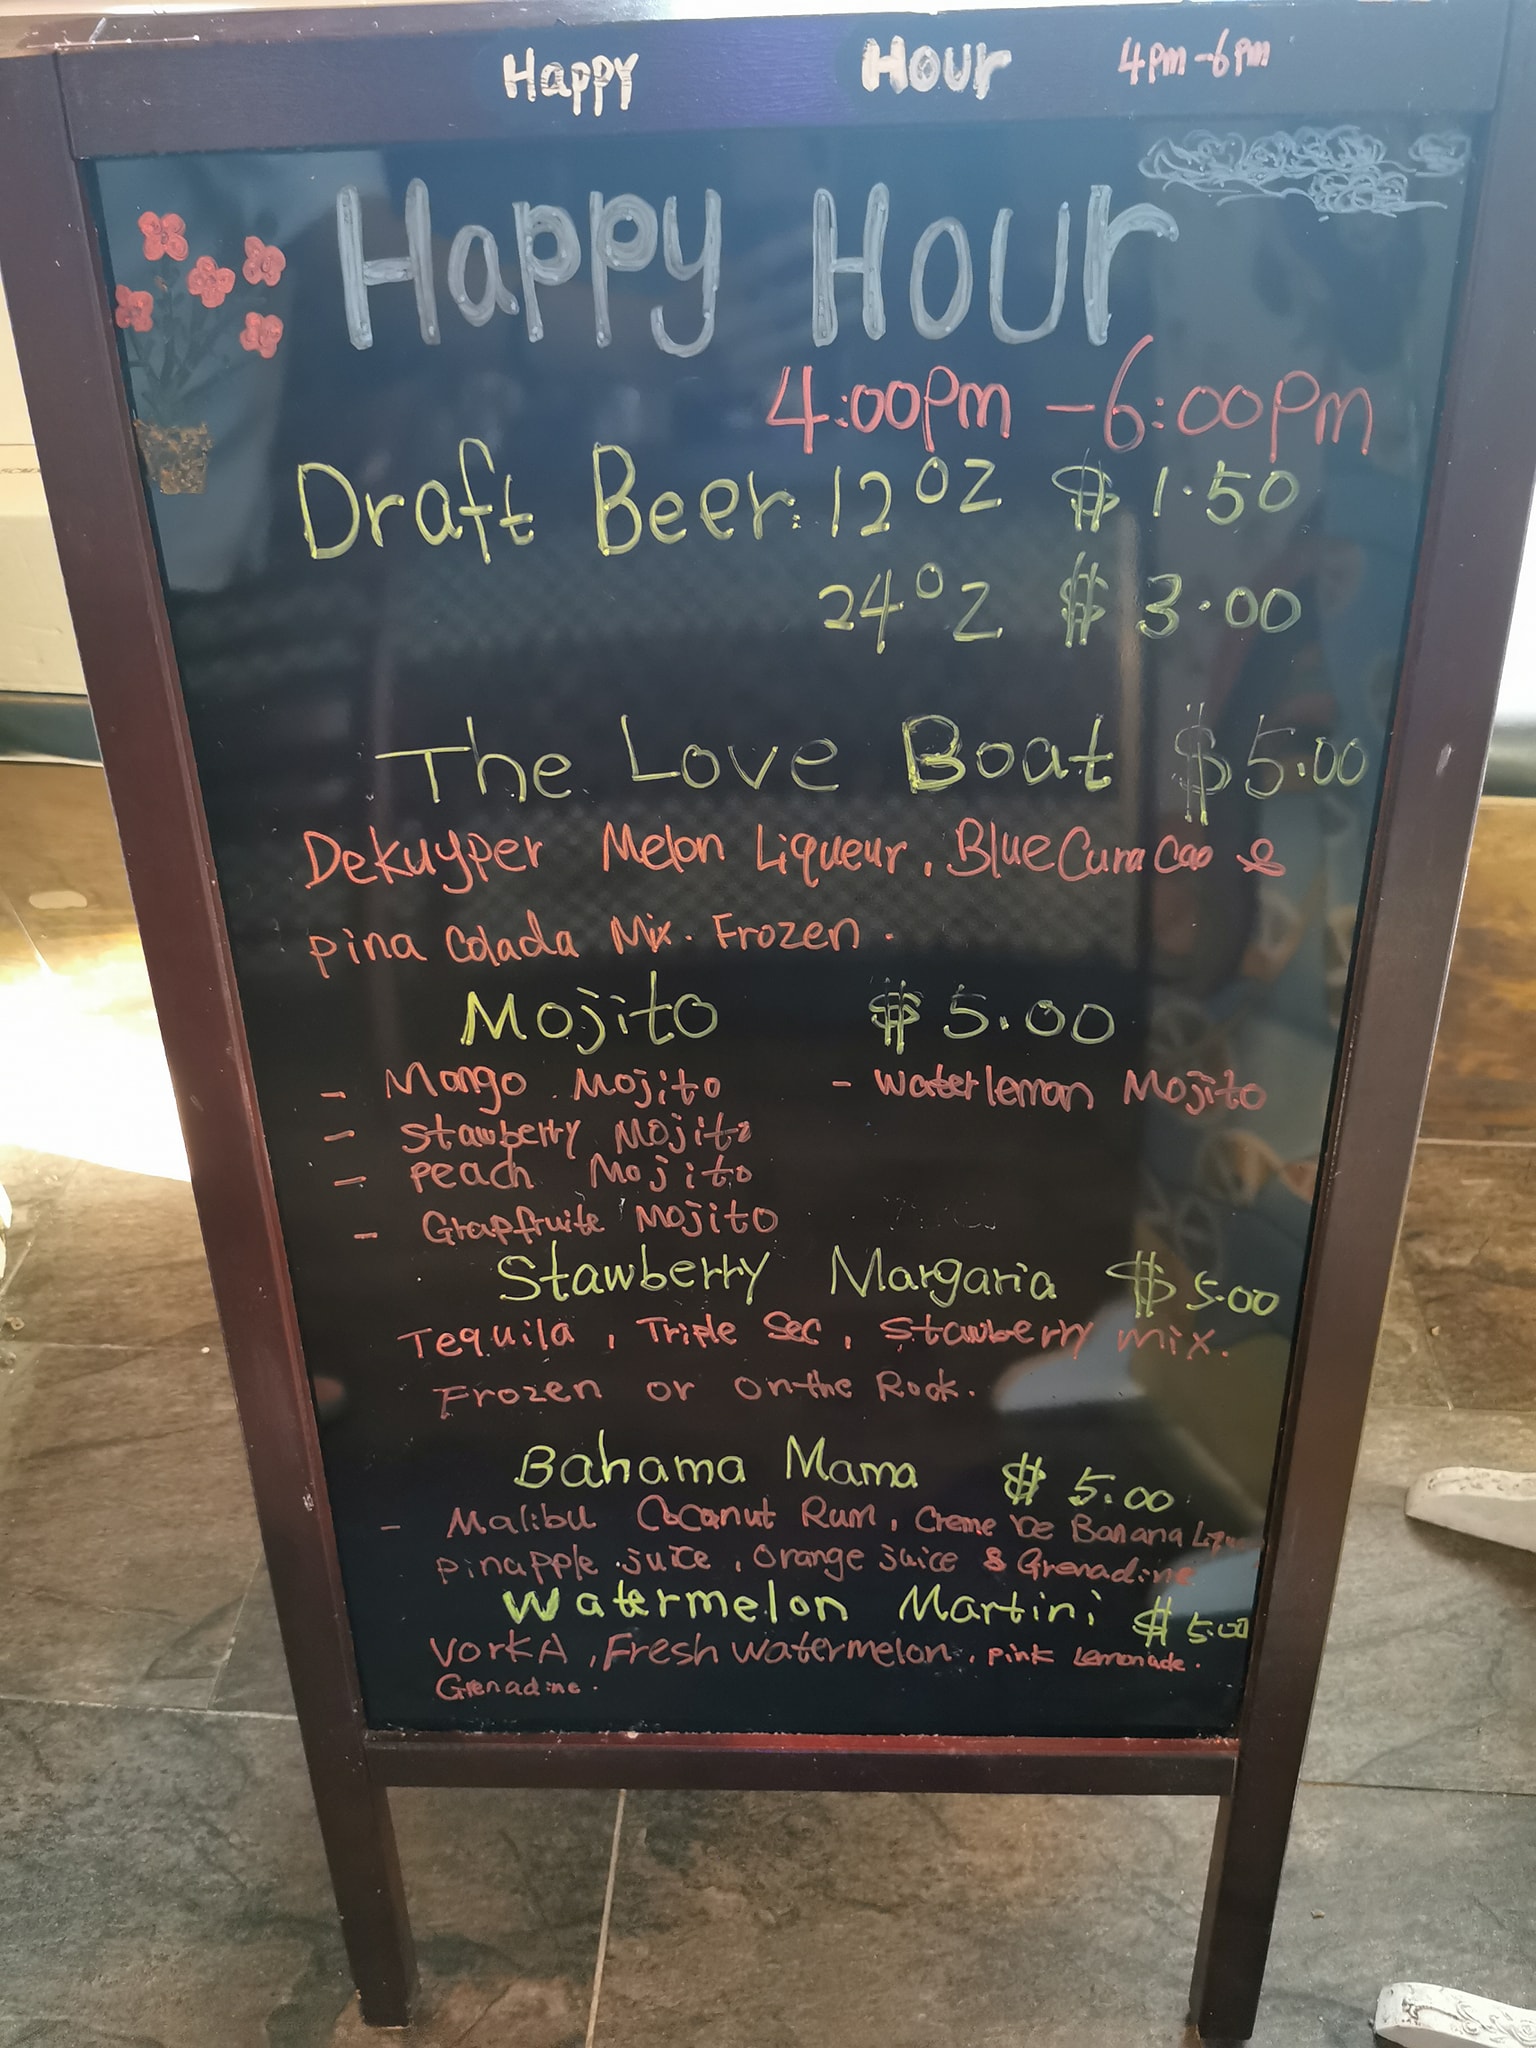 Happy Hour 4pm-6pm
Happy Hour
4:00pm - 6:00pm
Draft Beer: 12 oz $1.50
24 oz $3.00
The Love Boat $5.00
Dekuyper Melon Liqueur, Blue Curacao &
pina Colada Mix. Frozen.
Mojito $5.00
- Mango Mojito - Waterlemon Mojito
- Stawberry Mojito
- Peach Mojito
- Grapfruite Mojito
Stawberry Margaria $5.00
Tequila, Triple Sec, Stawberry mix.
Frozen or on the Rock.
Bahama Mama $5.00
- Malibu Coconut Rum, Creme De Banana
pinapple juice, Orange juice & Grenadine
Watermelon Martini $5.00
VorkA, Fresh Watermelon, Pink Lemonade.
Grenadine.